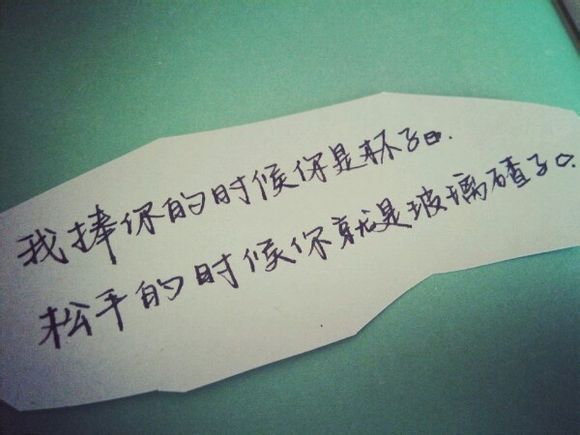 我捧你的时候你是杯子.
松手的时候你就是玻璃碴子。